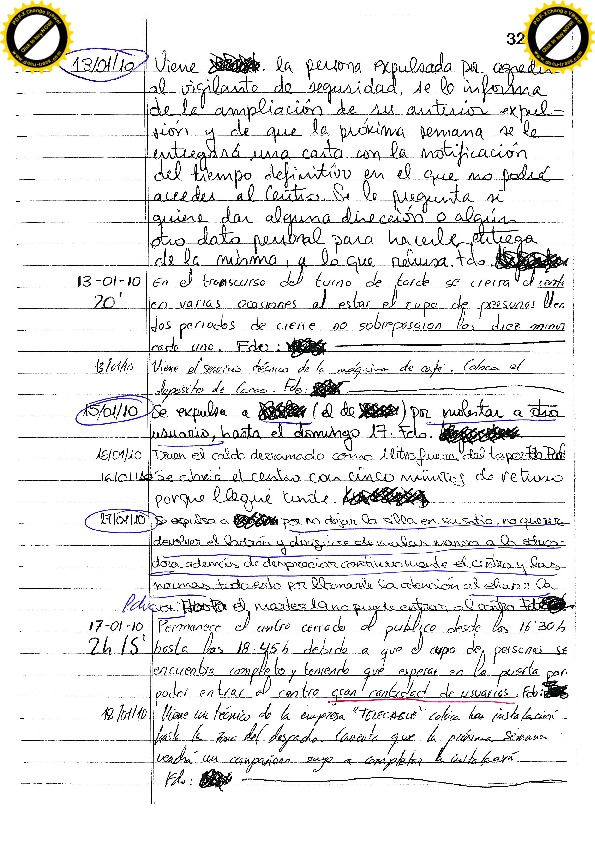 32
13/01/10 Viene . la persona expulsada por agredir
al vigilante de seguridad, se lo informa
de la ampliación de su anterior expul-
sión y de que la próxima semana se le
entregará una carta con la notificación
del tiempo definitivo en el que no podrá
acceder al Centro. Se le pregunta si
quiere dar alguna dirección o algún
otro dato personal para hacerle entrega
de la misma, a lo que rehusa. Fdo.
13-01-10 En el transcurso del turno de tarde se cierra el
20' en varias ocasiones al estar el cupo de personas
los periodos de cierre no sobrepasaron los diez
cada uno. Fdo:
13/01/10 Viene el servicio técnico de la máquina de café. Coloca el
deposito de Fdo:
15/01/10 Se expulsa a (el de ) por molestar a otro
usuario, hasta el domingo 17. Fdo.
16/01/10 Traen el caldo derramado como 1 litro fuera del
16/01/10 Se abrió el centro con cinco minutos de retraso
porque llegué tarde.
Se expulsa a por no dejar la silla en su sitio, no querer
devolver el y dirigirse de malas maneras a la
además de despreciar continuamente el centro y las
normas todo esto por llamarle la atención al
Hasta el martes 19 no puede entrar al centro Fdo
17-01-10 Permanece el centro cerrado al público desde las 16'30h
2h 15' hasta las 18'45h debido a que el cupo de personas se
encuentra completo y teniendo que esperar en la puerta por
poder entrar al centro gran cantidad de usuarios. Fdo:
18/01/10 Viene un técnico de la empresa "TELECABLE" instalación
hasta la zona del despacho comenta que la próxima semana
vendrá un compañero suyo a completar la instalación.
Fdo: